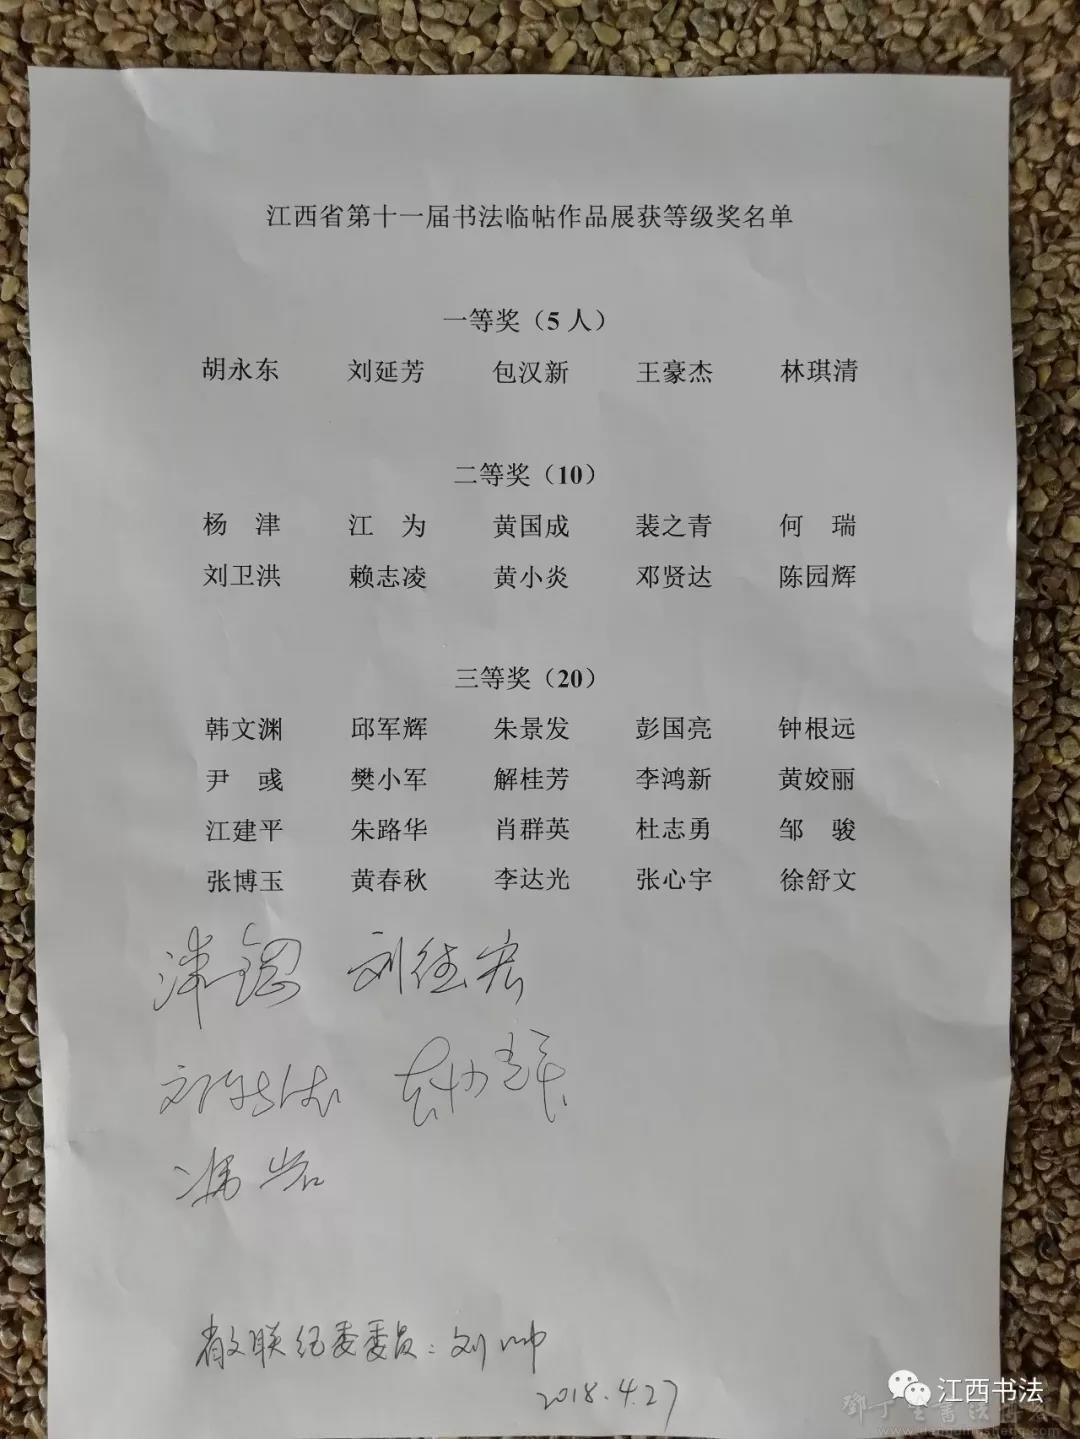 江西省第十一届书法临帖作品展获等级奖名单
一等奖（5 人）
胡永东 刘延芳 包汉新 王豪杰 林琪清
二等奖（10）
杨 津 江 为 黄国成 裴之青 何 瑞
刘卫洪 赖志凌 黄小炎 邓贤达 陈园辉
三等奖（20）
韩文渊 邱军辉 朱景发 彭国亮 钟根远
尹 彧 樊小军 解桂芳 李鸿新 黄姣丽
江建平 朱路华 肖群英 杜志勇 邹 骏
张博玉 黄春秋 李达光 张心宇 徐舒文
刘德宏
冯岩
省文联纪委委员：刘帅
2018.4.27
江西书法